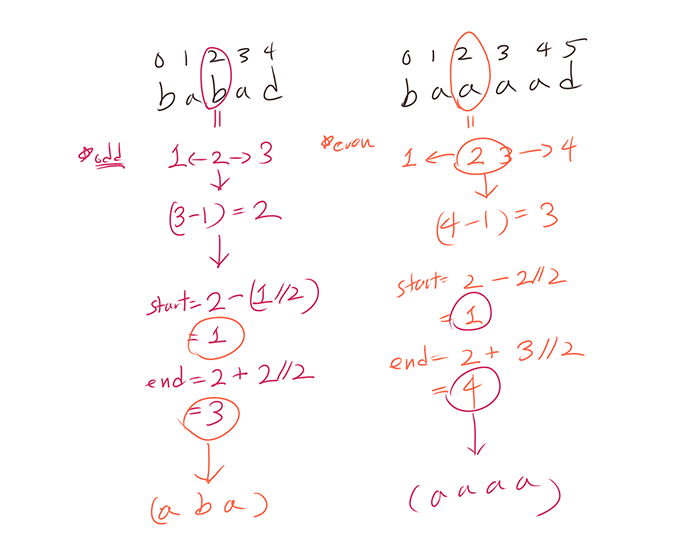 0 1 2 3 4
b a b a d
*odd
1 ← 2 → 3
(3-1) = 2
start = 2 - (1//2)
= 1
end = 2 + 2//2
= 3
(a b a)
0 1 2 3 4 5
b a a a a d
*even
1 ← 2 3 → 4
(4-1) = 3
start = 2 - 2//2
= 1
end = 2 + 3//2
= 4
(a a a a)